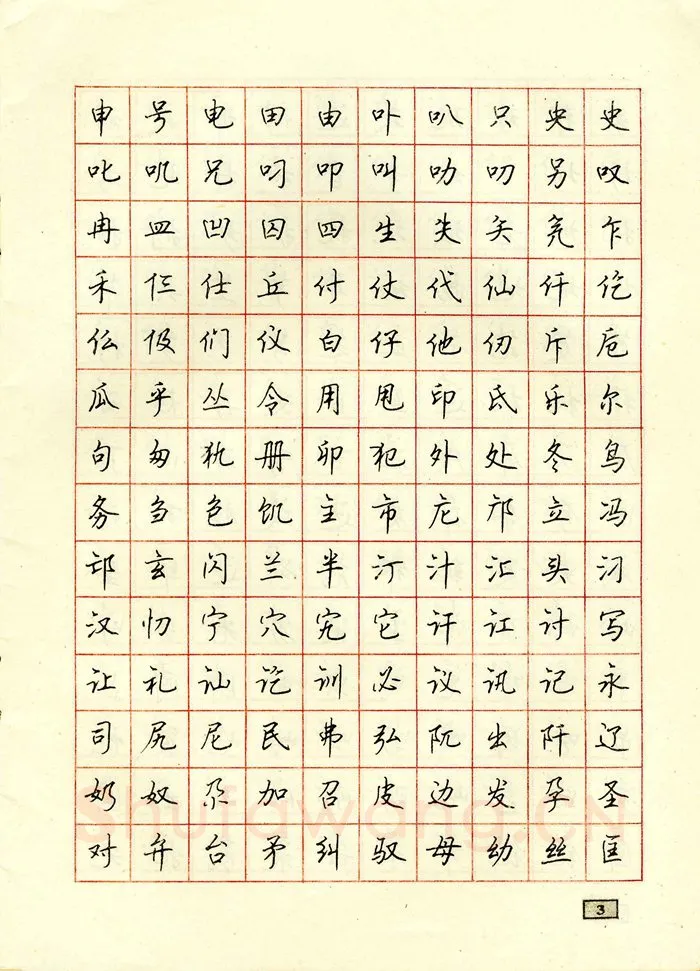 申号电田由卟叭只央史
叱叽兄叼叩叫叻叨另叹
冉皿凹囚四生失矢尧乍
禾仨仕丘付仗代仙仟仡
仫伋们仪白仔他仞斥卮
瓜乎丛令用甩印氐乐尔
句匆犰册卯犯外处冬鸟
务刍色饥主市庀邝立冯
邙玄闪兰半汀汁汇头汈
汉忉宁穴宄它讦讧讨写
让礼讪讫训必议讯记永
司尻尼民弗弘阮出阡辽
奶奴尕加召皮边发孕圣
对弁台矛纠驭母幼丝匡
Shufawang.cn
3